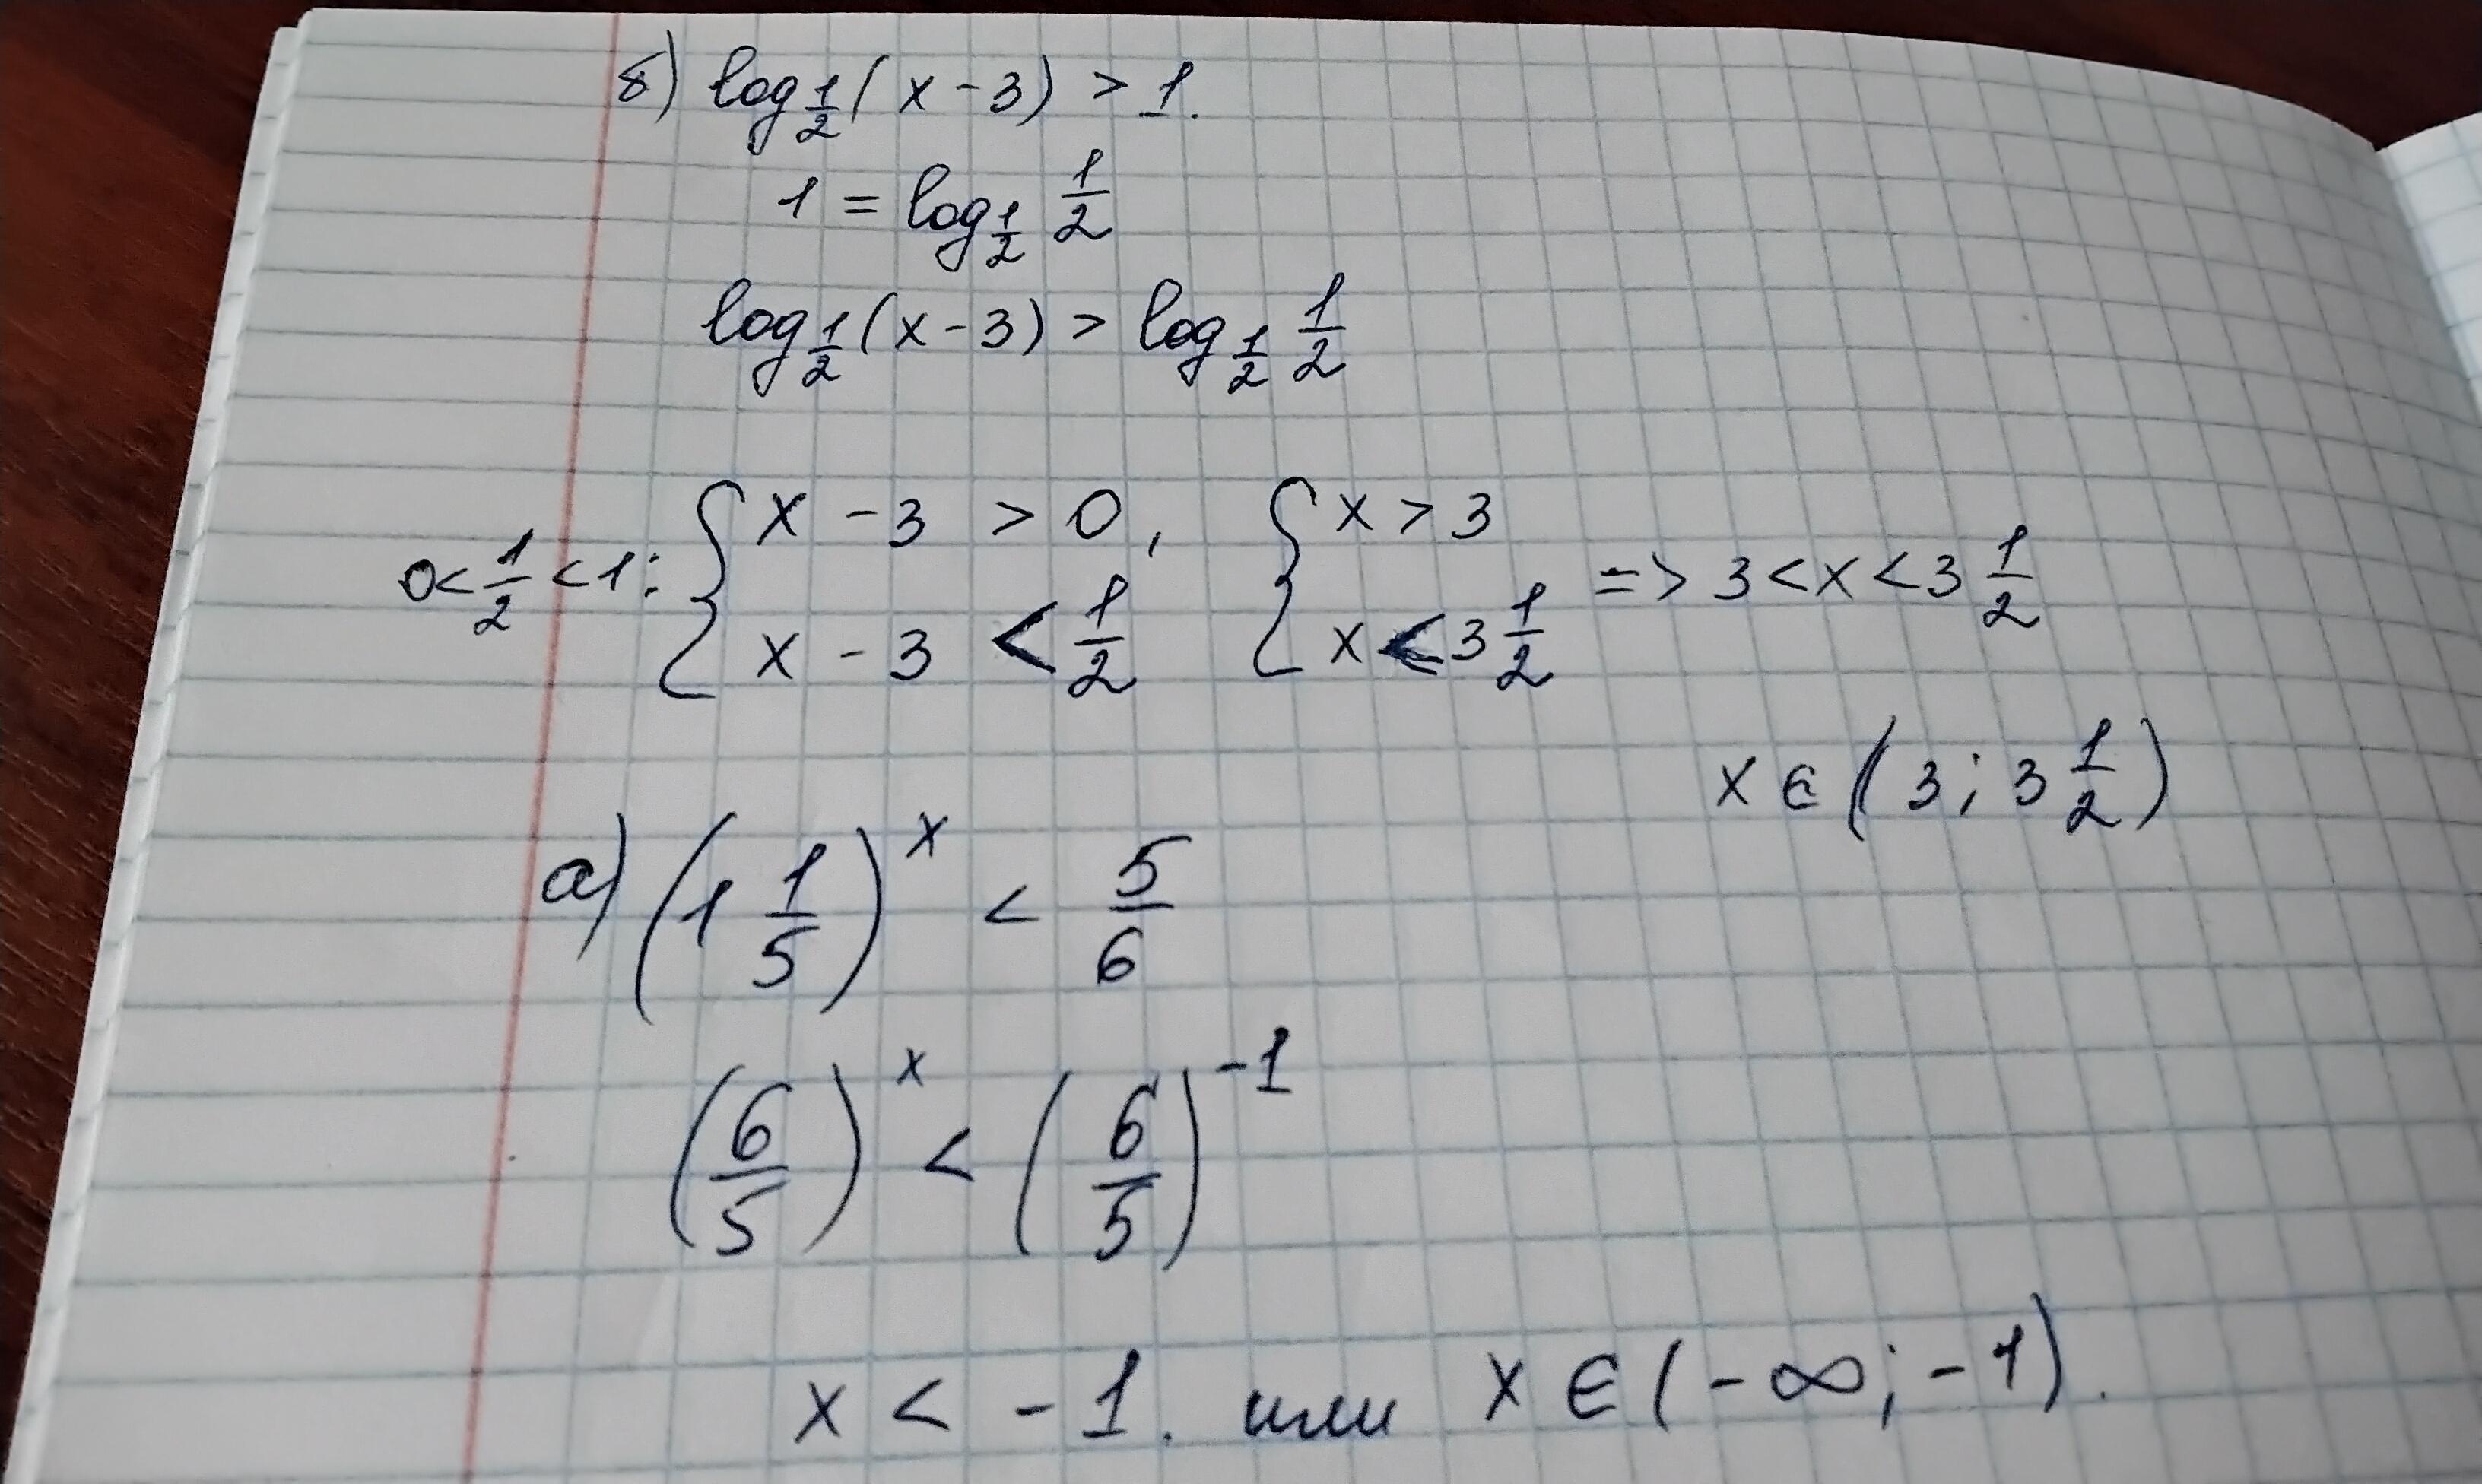 б) log_{1/2}(x - 3) > 1.
1 = log_{1/2} 1/2
log_{1/2}(x - 3) > log_{1/2} 1/2
0 < 1/2 < 1: { x - 3 > 0, x - 3 < 1/2 { x > 3 x < 3 1/2 => 3 < x < 3 1/2
x ∈ (3; 3 1/2)
а) (1 1/5)^x < 5/6
(6/5)^x < (6/5)^{-1}
x < -1. или x ∈ (-∞; -1).